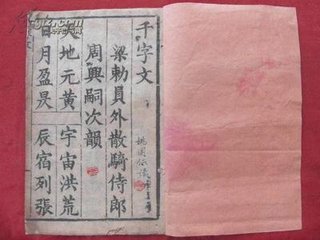 千字文
梁勅員外散騎侍郎
周興嗣次韻
天地元黃　宇宙洪荒
日月盈昃　辰宿列張